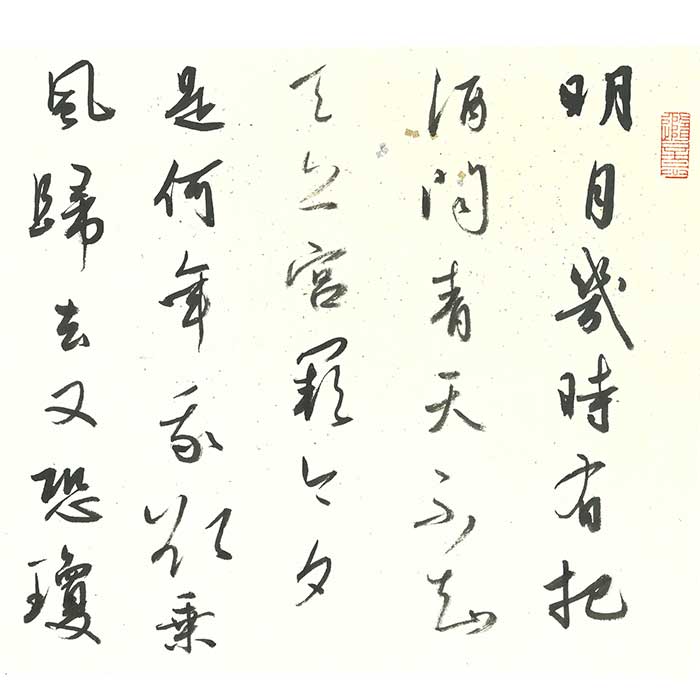 明月幾時有把
酒問青天不知
天上宮闕今夕
是何年我欲乘
風歸去又恐瓊